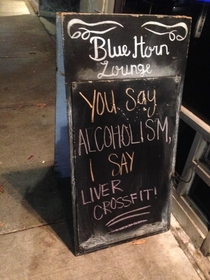 Blue Horn
Lounge
YOU SAY
ALCOHOLISM,
I SAY
LIVER
CROSSFIT!